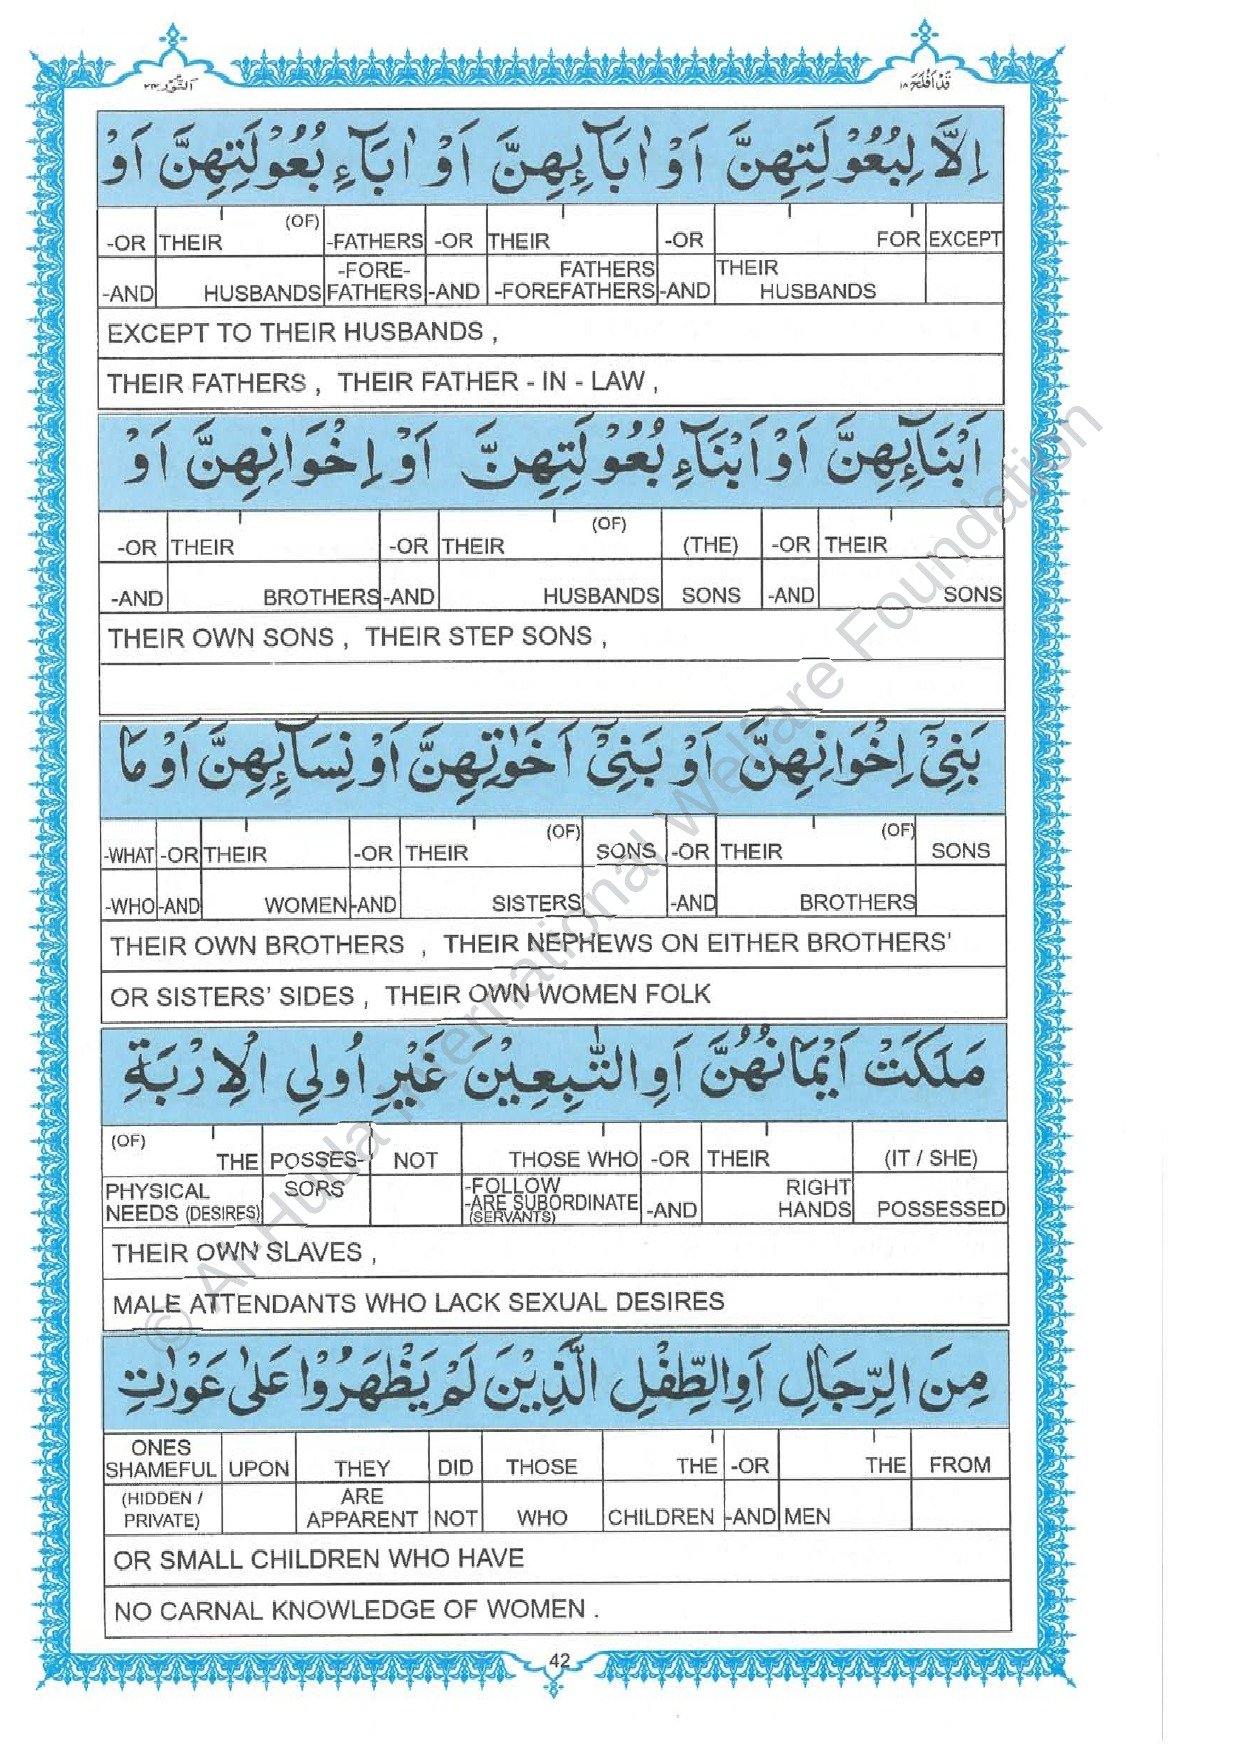 قَدْ اَفْلَحَ ١٨
اَلنُّوْر ٢٤
اِلَّا لِبُعُوْلَتِهِنَّ اَوْ اٰبَآئِهِنَّ اَوْ اٰبَآءِ بُعُوْلَتِهِنَّ اَوْ
-OR THEIR (OF) -FATHERS -OR THEIR -OR FOR EXCEPT
-AND HUSBANDS -FORE-FATHERS -AND FATHERS -FOREFATHERS -AND THEIR HUSBANDS
EXCEPT TO THEIR HUSBANDS ,
THEIR FATHERS , THEIR FATHER - IN - LAW ,
اَبْنَآئِهِنَّ اَوْ اَبْنَآءِ بُعُوْلَتِهِنَّ اَوْ اِخْوَانِهِنَّ اَوْ
-OR THEIR -OR THEIR (OF) (THE) -OR THEIR
-AND BROTHERS -AND HUSBANDS SONS -AND SONS
THEIR OWN SONS , THEIR STEP SONS ,
بَنِيْٓ اِخْوَانِهِنَّ اَوْ بَنِيْٓ اَخَوٰتِهِنَّ اَوْ نِسَآئِهِنَّ اَوْ مَا
-WHAT -OR THEIR -OR THEIR (OF) SONS -OR THEIR (OF) SONS
-WHO -AND WOMEN -AND SISTERS -AND BROTHERS
THEIR OWN BROTHERS , THEIR NEPHEWS ON EITHER BROTHERS'
OR SISTERS' SIDES , THEIR OWN WOMEN FOLK
مَلَكَتْ اَيْمَانُهُنَّ اَوِ التّٰبِعِيْنَ غَيْرِ اُولِي الْاِرْبَةِ
(OF) THE POSSES- NOT THOSE WHO -OR THEIR (IT / SHE)
PHYSICAL NEEDS (DESIRES) SORS -FOLLOW -ARE SUBORDINATE (SERVANTS) -AND RIGHT HANDS POSSESSED
THEIR OWN SLAVES ,
MALE ATTENDANTS WHO LACK SEXUAL DESIRES
مِنَ الرِّجَالِ اَوِ الطِّفْلِ الَّذِيْنَ لَمْ يَظْهَرُوْا عَلٰى عَوْرٰتِ
ONES SHAMEFUL UPON THEY DID THOSE THE -OR THE FROM
(HIDDEN / PRIVATE) ARE APPARENT NOT WHO CHILDREN -AND MEN
OR SMALL CHILDREN WHO HAVE
NO CARNAL KNOWLEDGE OF WOMEN .
42
© Al-Huda International Welfare Foundation